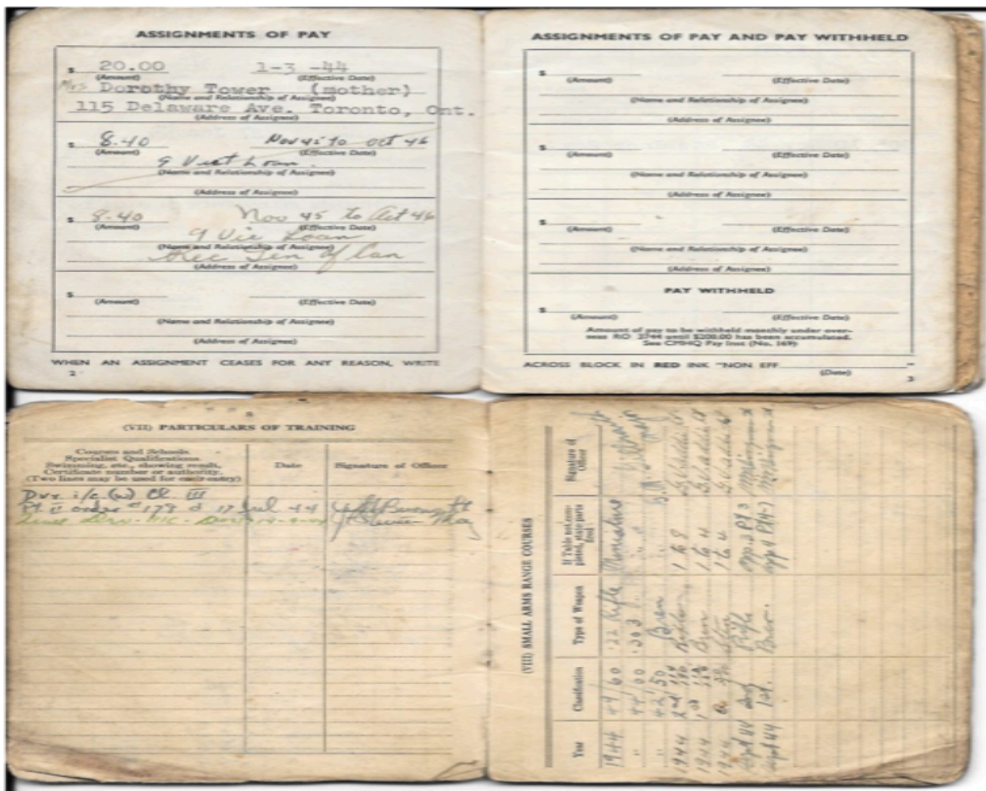 ASSIGNMENTS OF PAY
$ 20.00 1-3 -44
(Amount) (Effective Date)
Mrs Dorothy Tower (mother)
(Name and Relationship of Assignee)
115 Delaware Ave. Toronto, Ont.
(Address of Assignee)
$ 8.40 Nov 45 to Oct 46
(Amount) (Effective Date)
9 Vict Loan
(Name and Relationship of Assignee)
(Address of Assignee)
$ 8.40 Nov 45 to Oct 46
(Amount) (Effective Date)
9 Vic Loan
(Name and Relationship of Assignee)
(Address of Assignee)
$
(Amount) (Effective Date)
(Name and Relationship of Assignee)
(Address of Assignee)
WHEN AN ASSIGNMENT CEASES FOR ANY REASON, WRITE
2
ASSIGNMENTS OF PAY AND PAY WITHHELD
$
(Amount) (Effective Date)
(Name and Relationship of Assignee)
(Address of Assignee)
$
(Amount) (Effective Date)
(Name and Relationship of Assignee)
(Address of Assignee)
$
(Amount) (Effective Date)
(Name and Relationship of Assignee)
(Address of Assignee)
PAY WITHHELD
$
(Amount) (Effective Date)
Amount of pay to be withheld monthly under over-
seas RO 3744 until $200.00 has been accumulated.
See CMHQ Pay Inst (No. 169)
ACROSS BLOCK IN RED INK "NON EFF "
(Date)
3
8
(VII) PARTICULARS OF TRAINING
Courses and Schools.
Specialist Qualifications.
Swimming, etc., showing result,
Certificate number or authority.
(Two lines may be used for each entry)
Date
Signature of Officer
Dvr. i/c (w) Cl. III
Pt. II order # 179 d 17 Jul 44
(VIII) SMALL ARMS RANGE COURSES
Year Classification Type of Weapon If Table not completed, state parts fired Signature of Officer
1944 47/60 .22 Rifle
" 44/60 .303
" 42/50 Bren
1944 2nd 168
1944 1st Bren 164
1944 164
Sept 44 Rifle
Sept 44 1st. Bren.